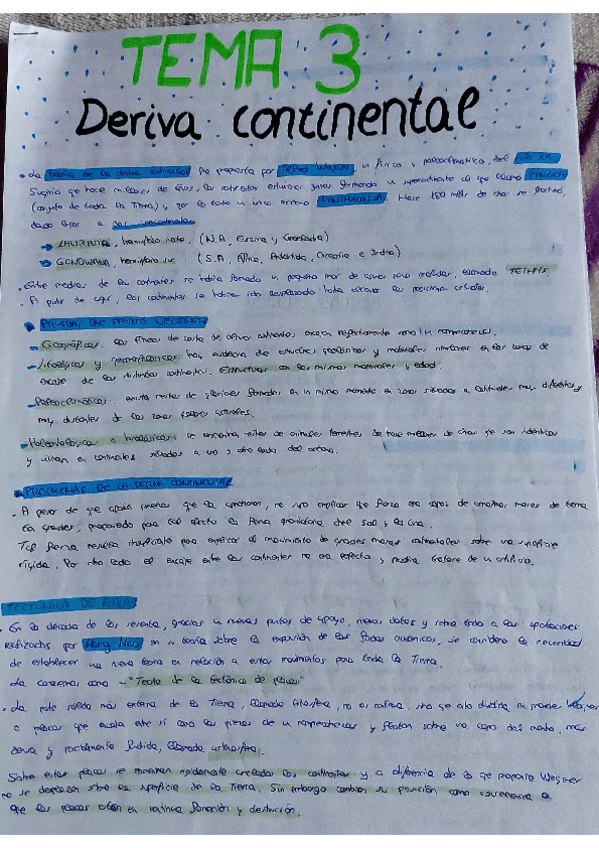 TEMA 3
Deriva continental
• La teoría de la deriva continental fue propuesta por Alfred Wegener, un físico y meteorólogo, del siglo XX.
Sugiría que hace millones de años, los estaban juntas formando un supercontinente al que llamó PANGEA
(conjunto de toda la Tierra) y por lo tanto un único océano PANTHALASSA. Hace 180 mill. de años se
dando lugar a dos supercontinentes
→ LAURASIA, hemisferio norte. (N.A, Eurasia y Groenlandia)
→ GONDWANA, hemisferio sur. (S.A, África, Antártida, Oceanía e India)
• Entre medias de los continentes se había formado un pequeño mar de aguas poco profundas, llamado TETHYS.
• A partir de aquí, los continentes se habrían ido desplazando hasta alcanzar las posiciones actuales.
PRUEBAS QUE APORTÓ WEGENER
- Geográficas. Las líneas de costa de varios continentes, encajan perfectamente como un rompecabezas.
- Litológicas y geomorfológicas: hay evidencia de estructuras geológicas y materiales en las zonas de
encaje de los distintos continentes. Estructuras con los mismos materiales y edad.
- Paleoclimáticas. existen restos de glaciares formados en un mismo momento en zonas situadas a latitudes muy diferentes y
muy distantes de las zonas polares actuales.
- Paleontológicas o biológicas: se encuentran restos de animales terrestres de hace millones de años que son idénticos
y vivían en continentes situados a uno y otro lado del océano.
PROBLEMAS DE LA DERIVA CONTINENTAL
• A pesar de que aportó pruebas que la apoyaban, no supo explicar que fuerza era capaz de arrastrar masas de tierra
tan grandes, proponiendo para tal efecto la fuerza gravitatoria del Sol y la Luna.
Tal fuerza resulta insuficiente para explicar el movimiento de grandes masas continentales sobre una superficie
rígida. Por otro lado el encaje entre los continentes no era perfecto, y podría tratarse de un artificio.
TECTÓNICA DE PLACAS
• En la década de los sesenta, gracias a nuevos puntos de apoyo, nuevos datos y sobre todo a las aportaciones
realizadas por Harry Hess en su teoría sobre la expansión de los fondos oceánicos, se consideró la necesidad
de establecer una nueva teoría en relación a estos movimientos para toda la Tierra.
La conocemos como → "Teoría de la tectónica de placas"
• La parte sólida más externa de la Tierra, llamada litosfera, no es continua, sino que está dividida en grandes bloques
o placas que encajan entre sí como las piezas de un rompecabezas y flotan sobre una capa del manto, más
densa y parcialmente fundida, llamada astenosfera.
Sobre estas placas se encuentran rígidamente anclados los continentes y a diferencia de lo que proponía Wegener
no se desplazan sobre la superficie de la Tierra. Sin embargo cambian su posición como consecuencia a
que las placas están en continua formación y destrucción.